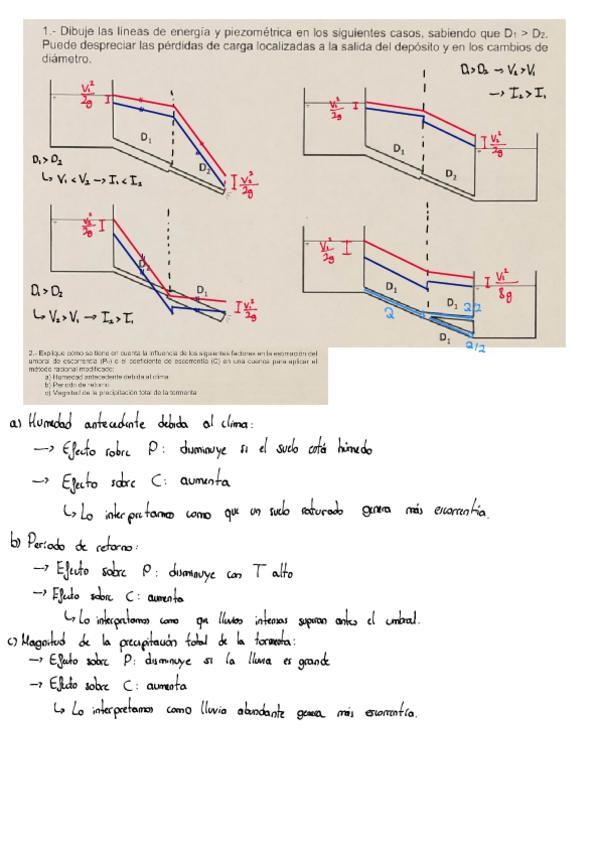 1.- Dibuje las líneas de energía y piezométrica en los siguientes casos, sabiendo que D₁ > D₂.
Puede despreciar las pérdidas de carga localizadas a la salida del depósito y en los cambios de
diámetro.
V₁²/2g
D₁
D₂
D₁>D₂
↳ V₁<V₂→I₁<I₂
V₂²/2g
D₁>D₂ → V₂>V₁
→ I₂>I₁
V₁²/2g
D₁
D₂
V₂²/2g
V₂²/2g
D₂
D₁
D₁>D₂
↳ V₂>V₁ → I₂>I₁
V₁²/2g
V₁²/2g
D₁
D₁
D₁
Q
Q/2
Q/2
V₁²/8g
2.- Explique cómo se tiene en cuenta la influencia de los siguientes factores en la estimación del
umbral de escorrentía (P₀) o el coeficiente de escorrentía (C) en una cuenca para aplicar el
método racional modificado:
a) Humedad antecedente debida al clima
b) Periodo de retorno
c) Magnitud de la precipitación total de la tormenta
a) Humedad antecedente debida al clima:
→ Efecto sobre P: disminuye si el suelo está húmedo
→ Efecto sobre C: aumenta
↳ Lo interpretamos como que un suelo saturado genera más escorrentía.
b) Período de retorno:
→ Efecto sobre P: disminuye con T alto
→ Efecto sobre C: aumenta
↳ Lo interpretamos como que lluvias intensas superan antes el umbral.
c) Magnitud de la precipitación total de la tormenta:
→ Efecto sobre P: disminuye si la lluvia es grande
→ Efecto sobre C: aumenta
↳ Lo interpretamos como lluvia abundante genera más escorrentía.